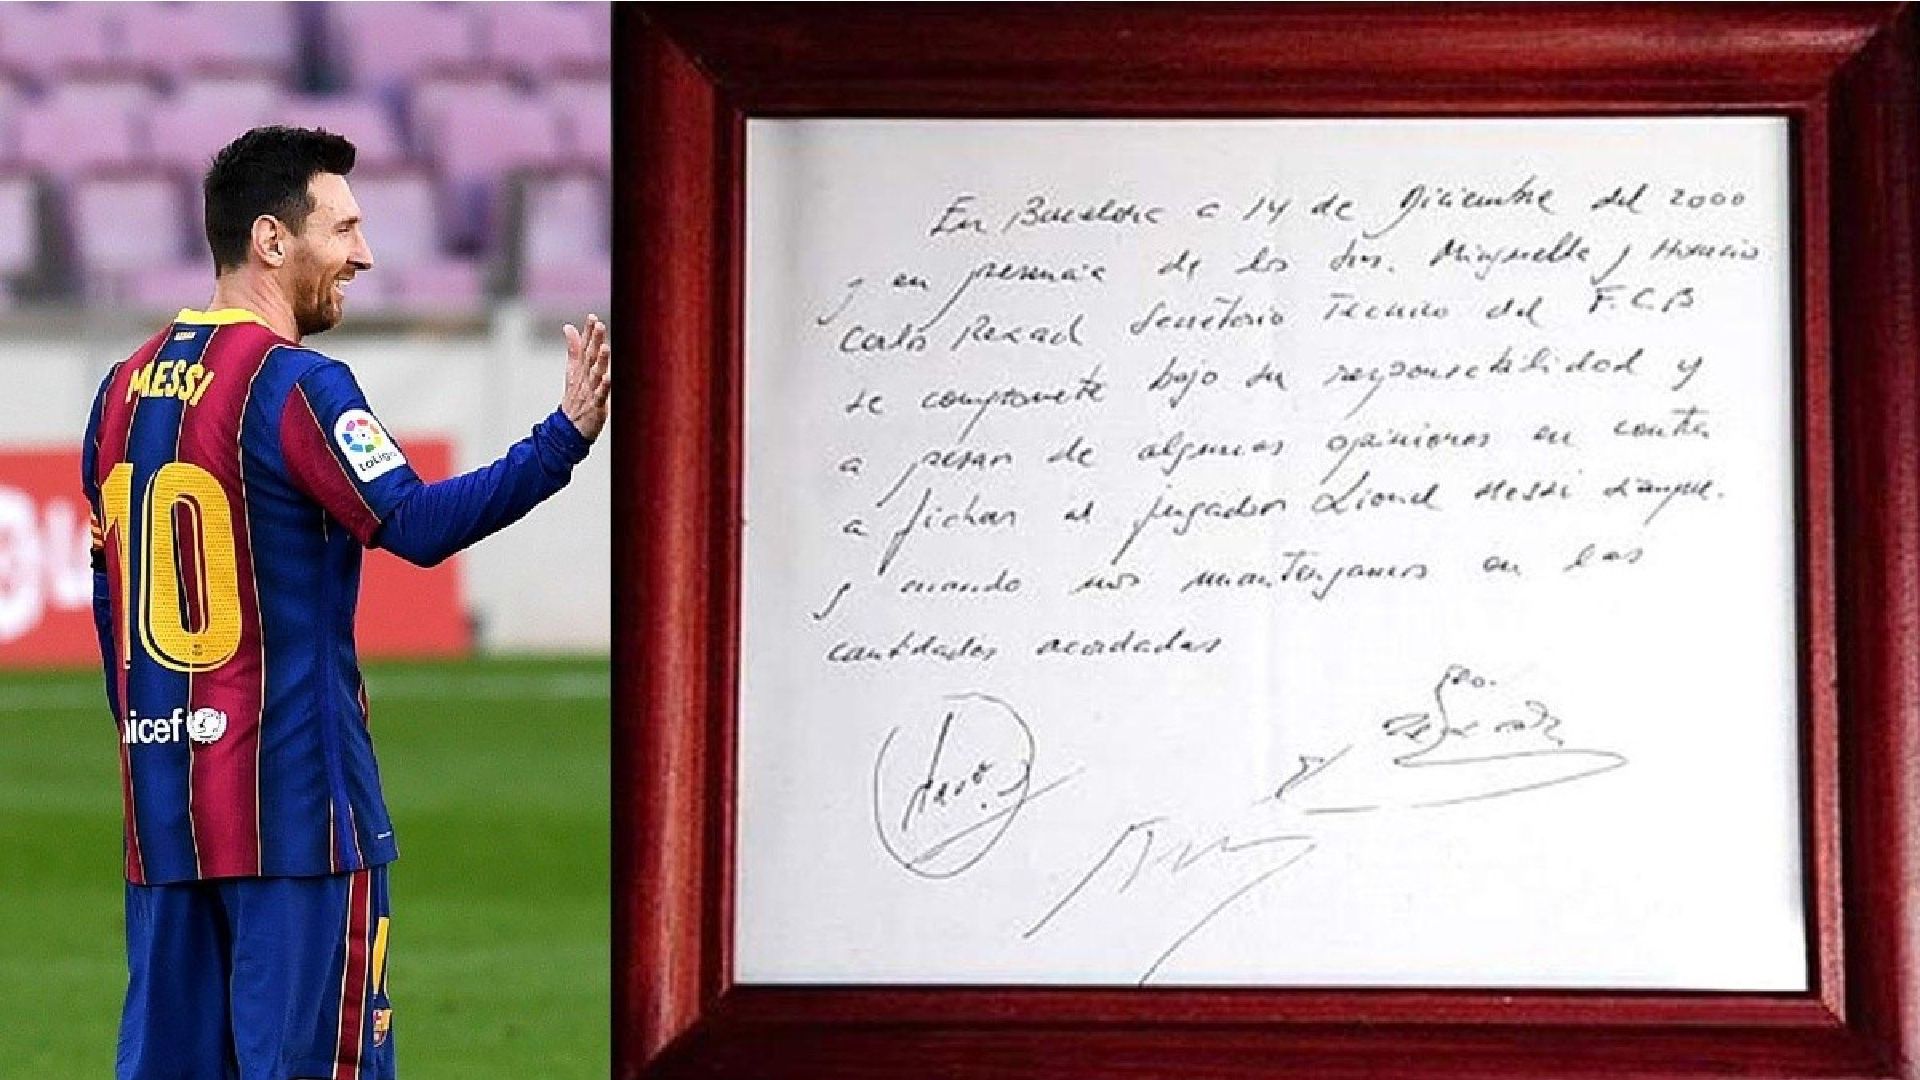 MESSI
10
LaLiga
nicef
En Barcelona a 14 de Diciembre del 2000
y en presencia de los Srs. Minguella y Horacio
Carles Rexach Secretario Tecnico del F.C.B
se compromete bajo su responsabilidad y
a pesar de algunas opiniones en contra
a fichar al jugador Lionel Messi siempre
y cuando nos mantengamos en las
cantidades acordadas